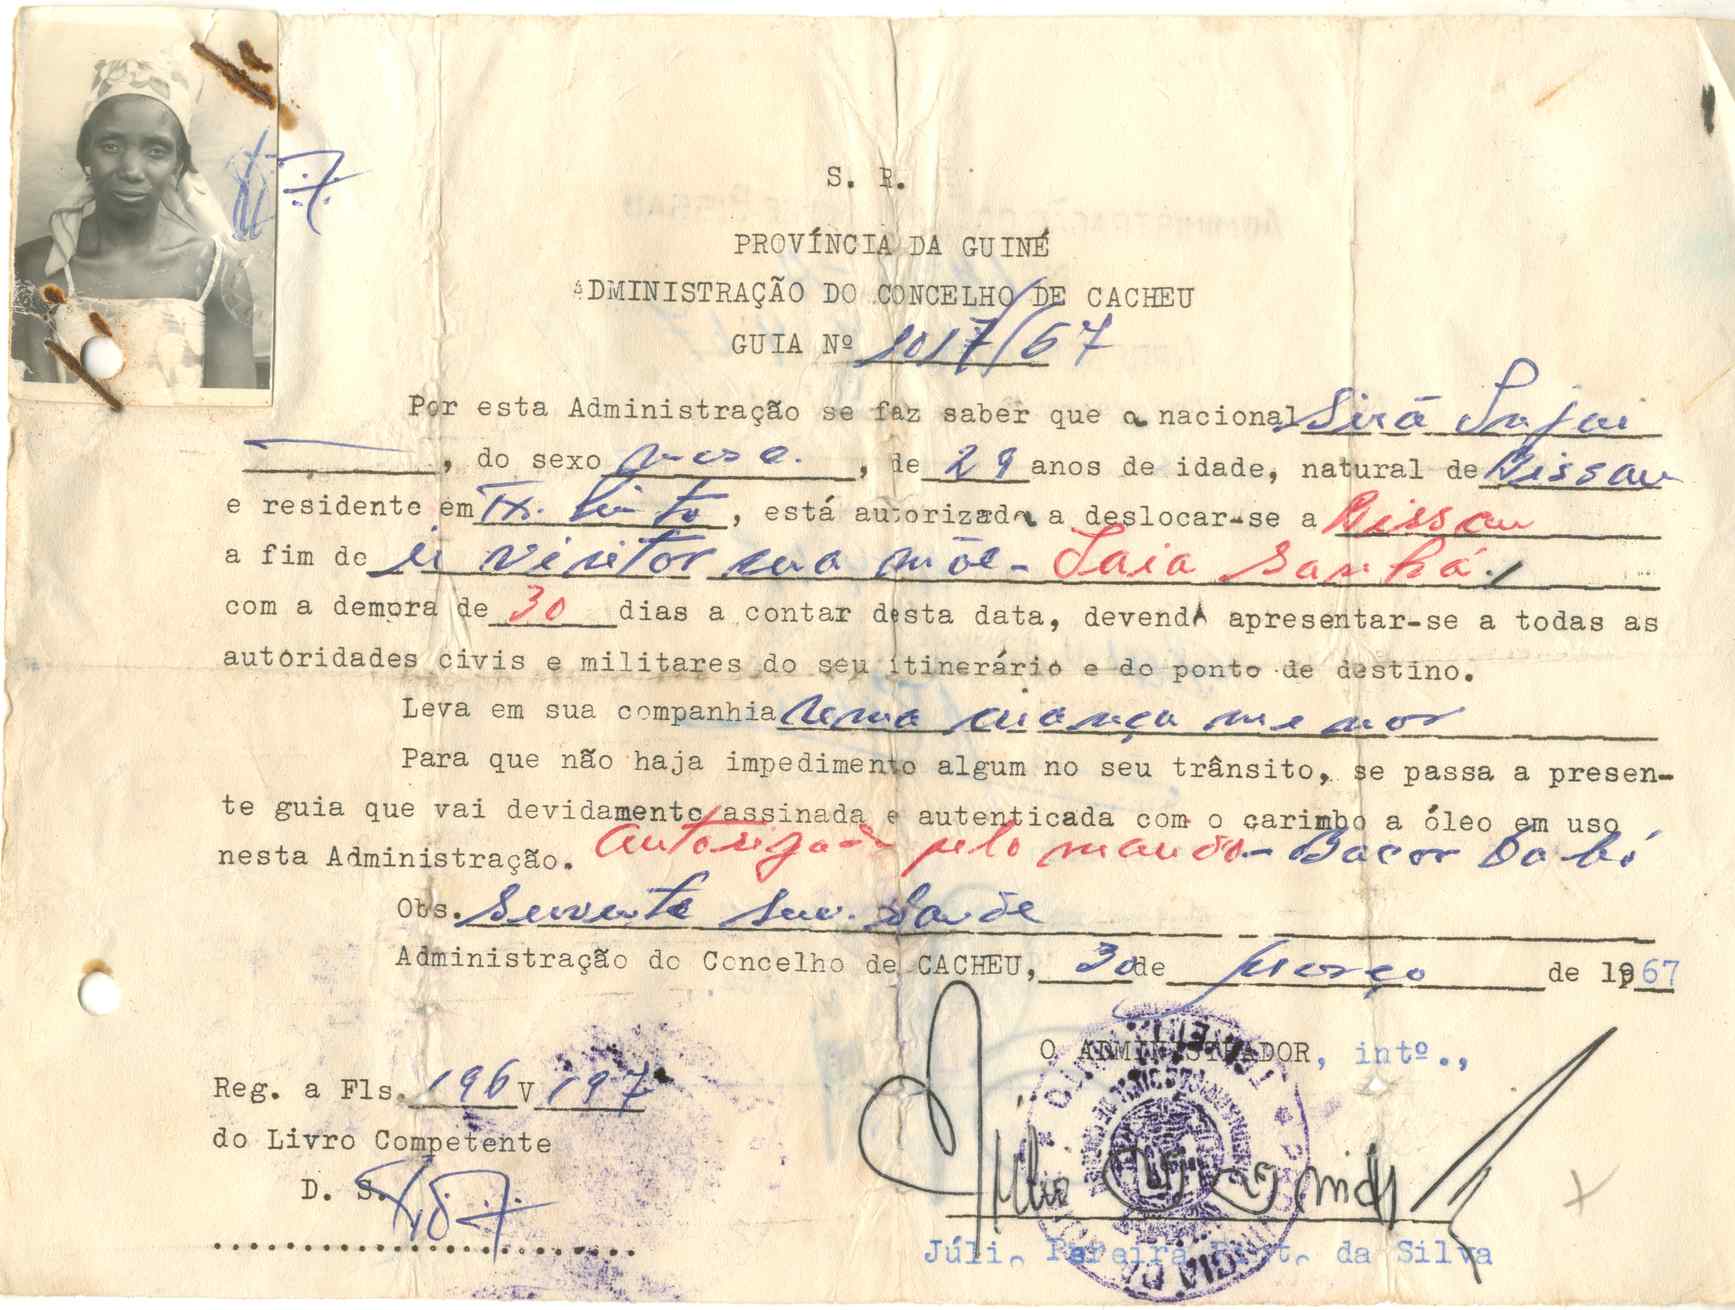 S. R.
PROVÍNCIA DA GUINÉ
ADMINISTRAÇÃO DO CONCELHO DE CACHEU
GUIA Nº 1017/67
Por esta Administração se faz saber que a nacional Sirá
, do sexo , de 29 anos de idade, natural de Bissau
e residente em , está autorizada a deslocar-se a Bissau
a fim de ir visitar sua mãe - Saia Sanhá.
com a demora de 30 dias a contar desta data, devendo apresentar-se a todas as
autoridades civis e militares do seu itinerário e do ponto de destino.
Leva em sua companhia uma criança menor
Para que não haja impedimento algum no seu trânsito, se passa a presen-
te guia que vai devidamente assinada e autenticada com o carimbo a óleo em uso
nesta Administração. autorizada pelo marido - Bacar
Obs. Servente Saúde
Administração do Concelho de CACHEU, 30 de Março de 1967
O ADMINISTRADOR, intº.,
Reg. a Fls. 196 V 197
do Livro Competente
D. S.
Júlio Pereira da Silva